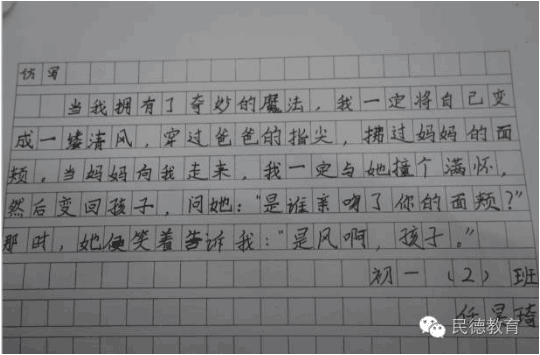 仿写
当我拥有了奇妙的魔法，我一定将自己变
成一缕清风，穿过爸爸的指尖，拂过妈妈的面
颊。当妈妈向我走来，我一定与她撞个满怀，
然后变回孩子，问她：“是谁亲吻了你的面颊？”
那时，她便笑着告诉我：“是风啊，孩子。”
初一（2）班
任昱琦
民德教育